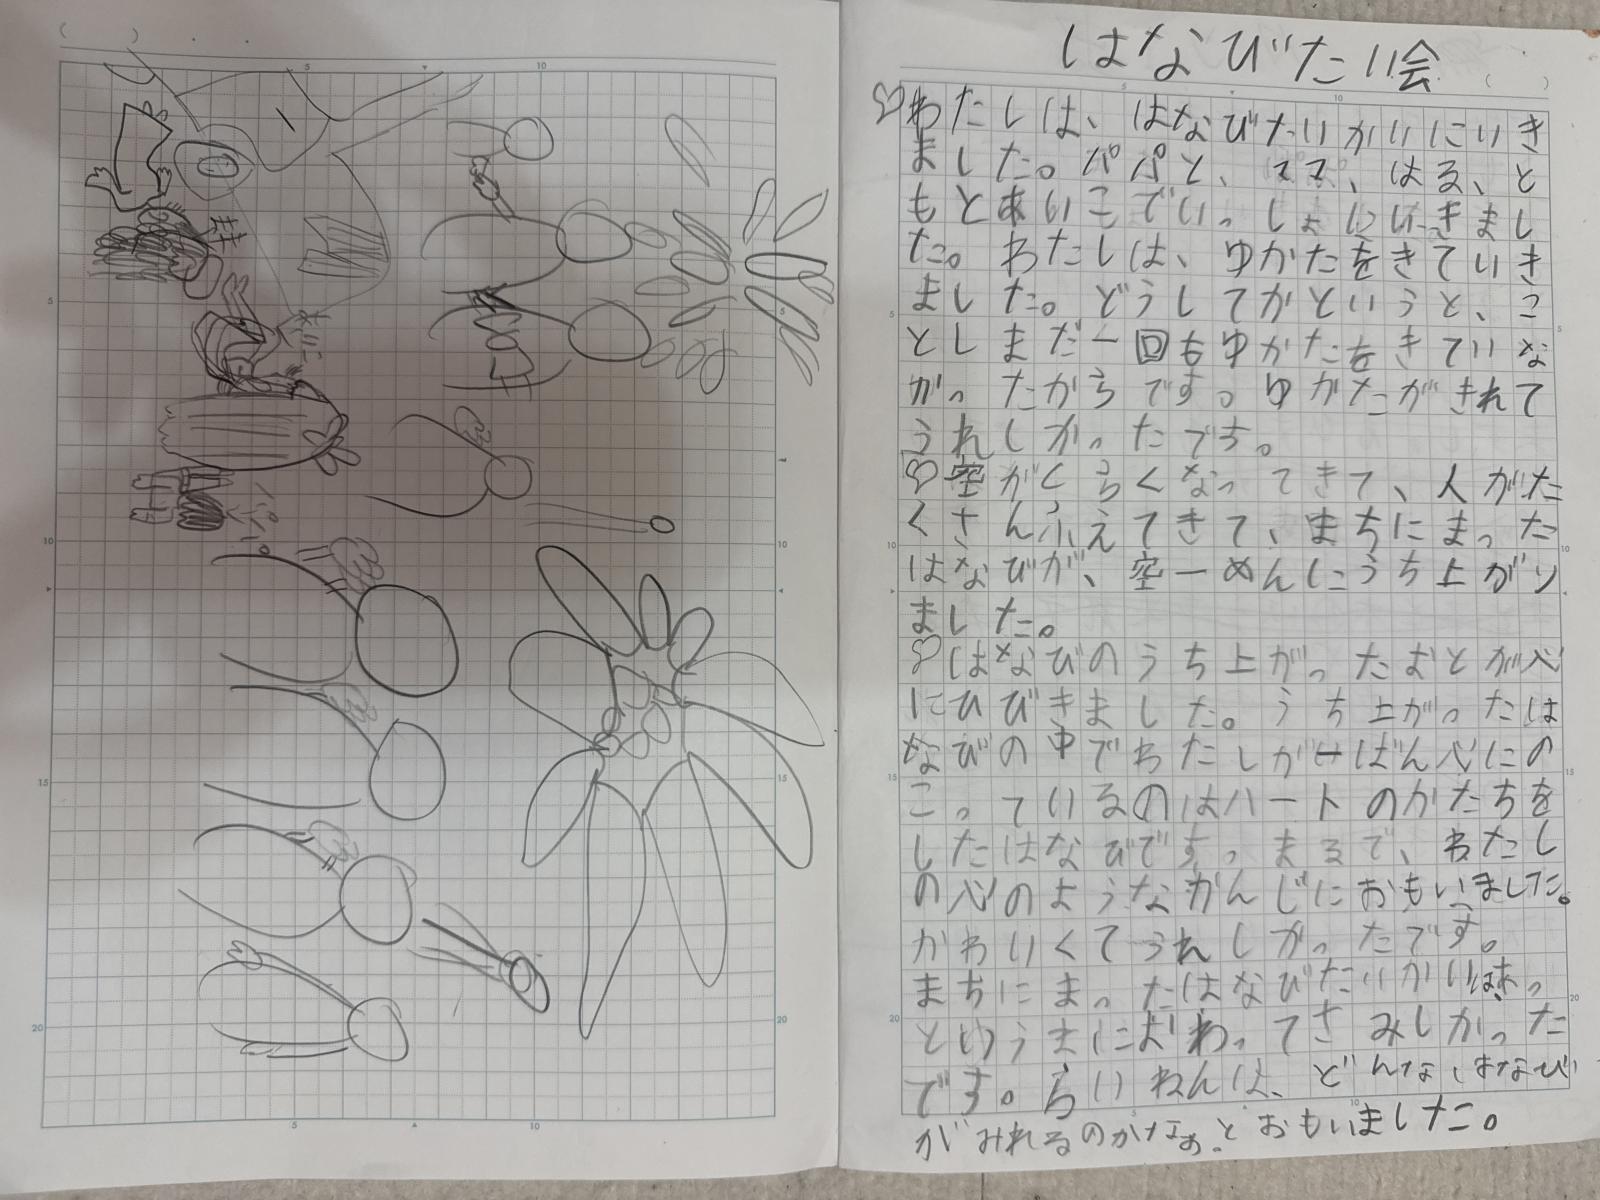 はなびたい会
わたしは、はなびたいかいにいき
ました。パパと、ママ、はる、と
もとあいこでいっしょにいきまし
た。わたしは、ゆかたをきていき
ました。どうしてかというと、こ
としまだ一回もゆかたをきていな
かったからです。ゆかたがきれて
うれしかったです。
空がくらくなってきて、人がた
くさんふえてきて、まちにまった
はなびが、空一めんにうち上がり
ました。
はなびのうち上がったおとが心
にひびきました。うち上がったは
なびの中でわたしが一ばん心にの
こっているのはハートのかたちを
したはなびです。まるで、わたし
の心のようなかんじにおもいました。
かわいくてうれしかったです。
まちにまったはなびたいかいはあっ
というまにおわってさみしかった
です。らいねんは、どんなはなび
がみれるのかなぁ。とおもいました。